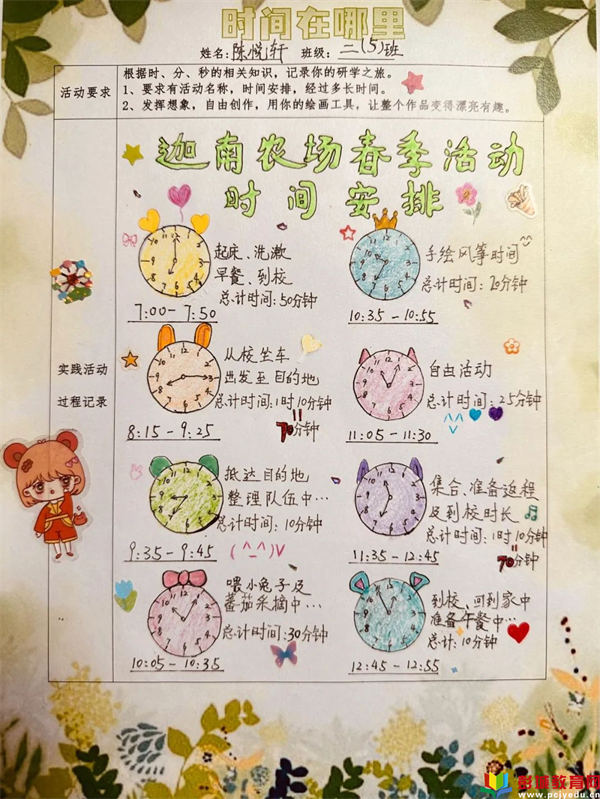 时间在哪里
姓名:陈悦轩 班级:二(5)班
活动要求
根据时、分、秒的相关知识，记录你的研学之旅。
1、要求有活动名称，时间安排，经过多长时间。
2、发挥想象，自由创作，用你的绘画工具，让整个作品变得漂亮有趣。
实践活动
过程记录
迦南农场春季活动
时间安排
起床、洗漱
早餐、到校
总计时间:50分钟
7:00-7:50
手绘风筝时间
总计时间:20分钟
10:35-10:55
从校坐车
出发至目的地
总计时间:1时10分钟
70分钟
8:15-9:25
自由活动
总计时间:25分钟
11:05-11:30
抵达目的地
整理队伍中…
总计时间:10分钟
9:35-9:45
(^_^)V
集合、准备返程
及到校时长
总计时间:1时10分钟
70分钟
11:35-12:45
喂小兔子及
蕃茄采摘中…
总计时间:30分钟
10:05-10:35
到校、回到家中
准备午餐中…
总计:10分钟
12:45-12:55
彭城教育网
www.pcjyedu.cn